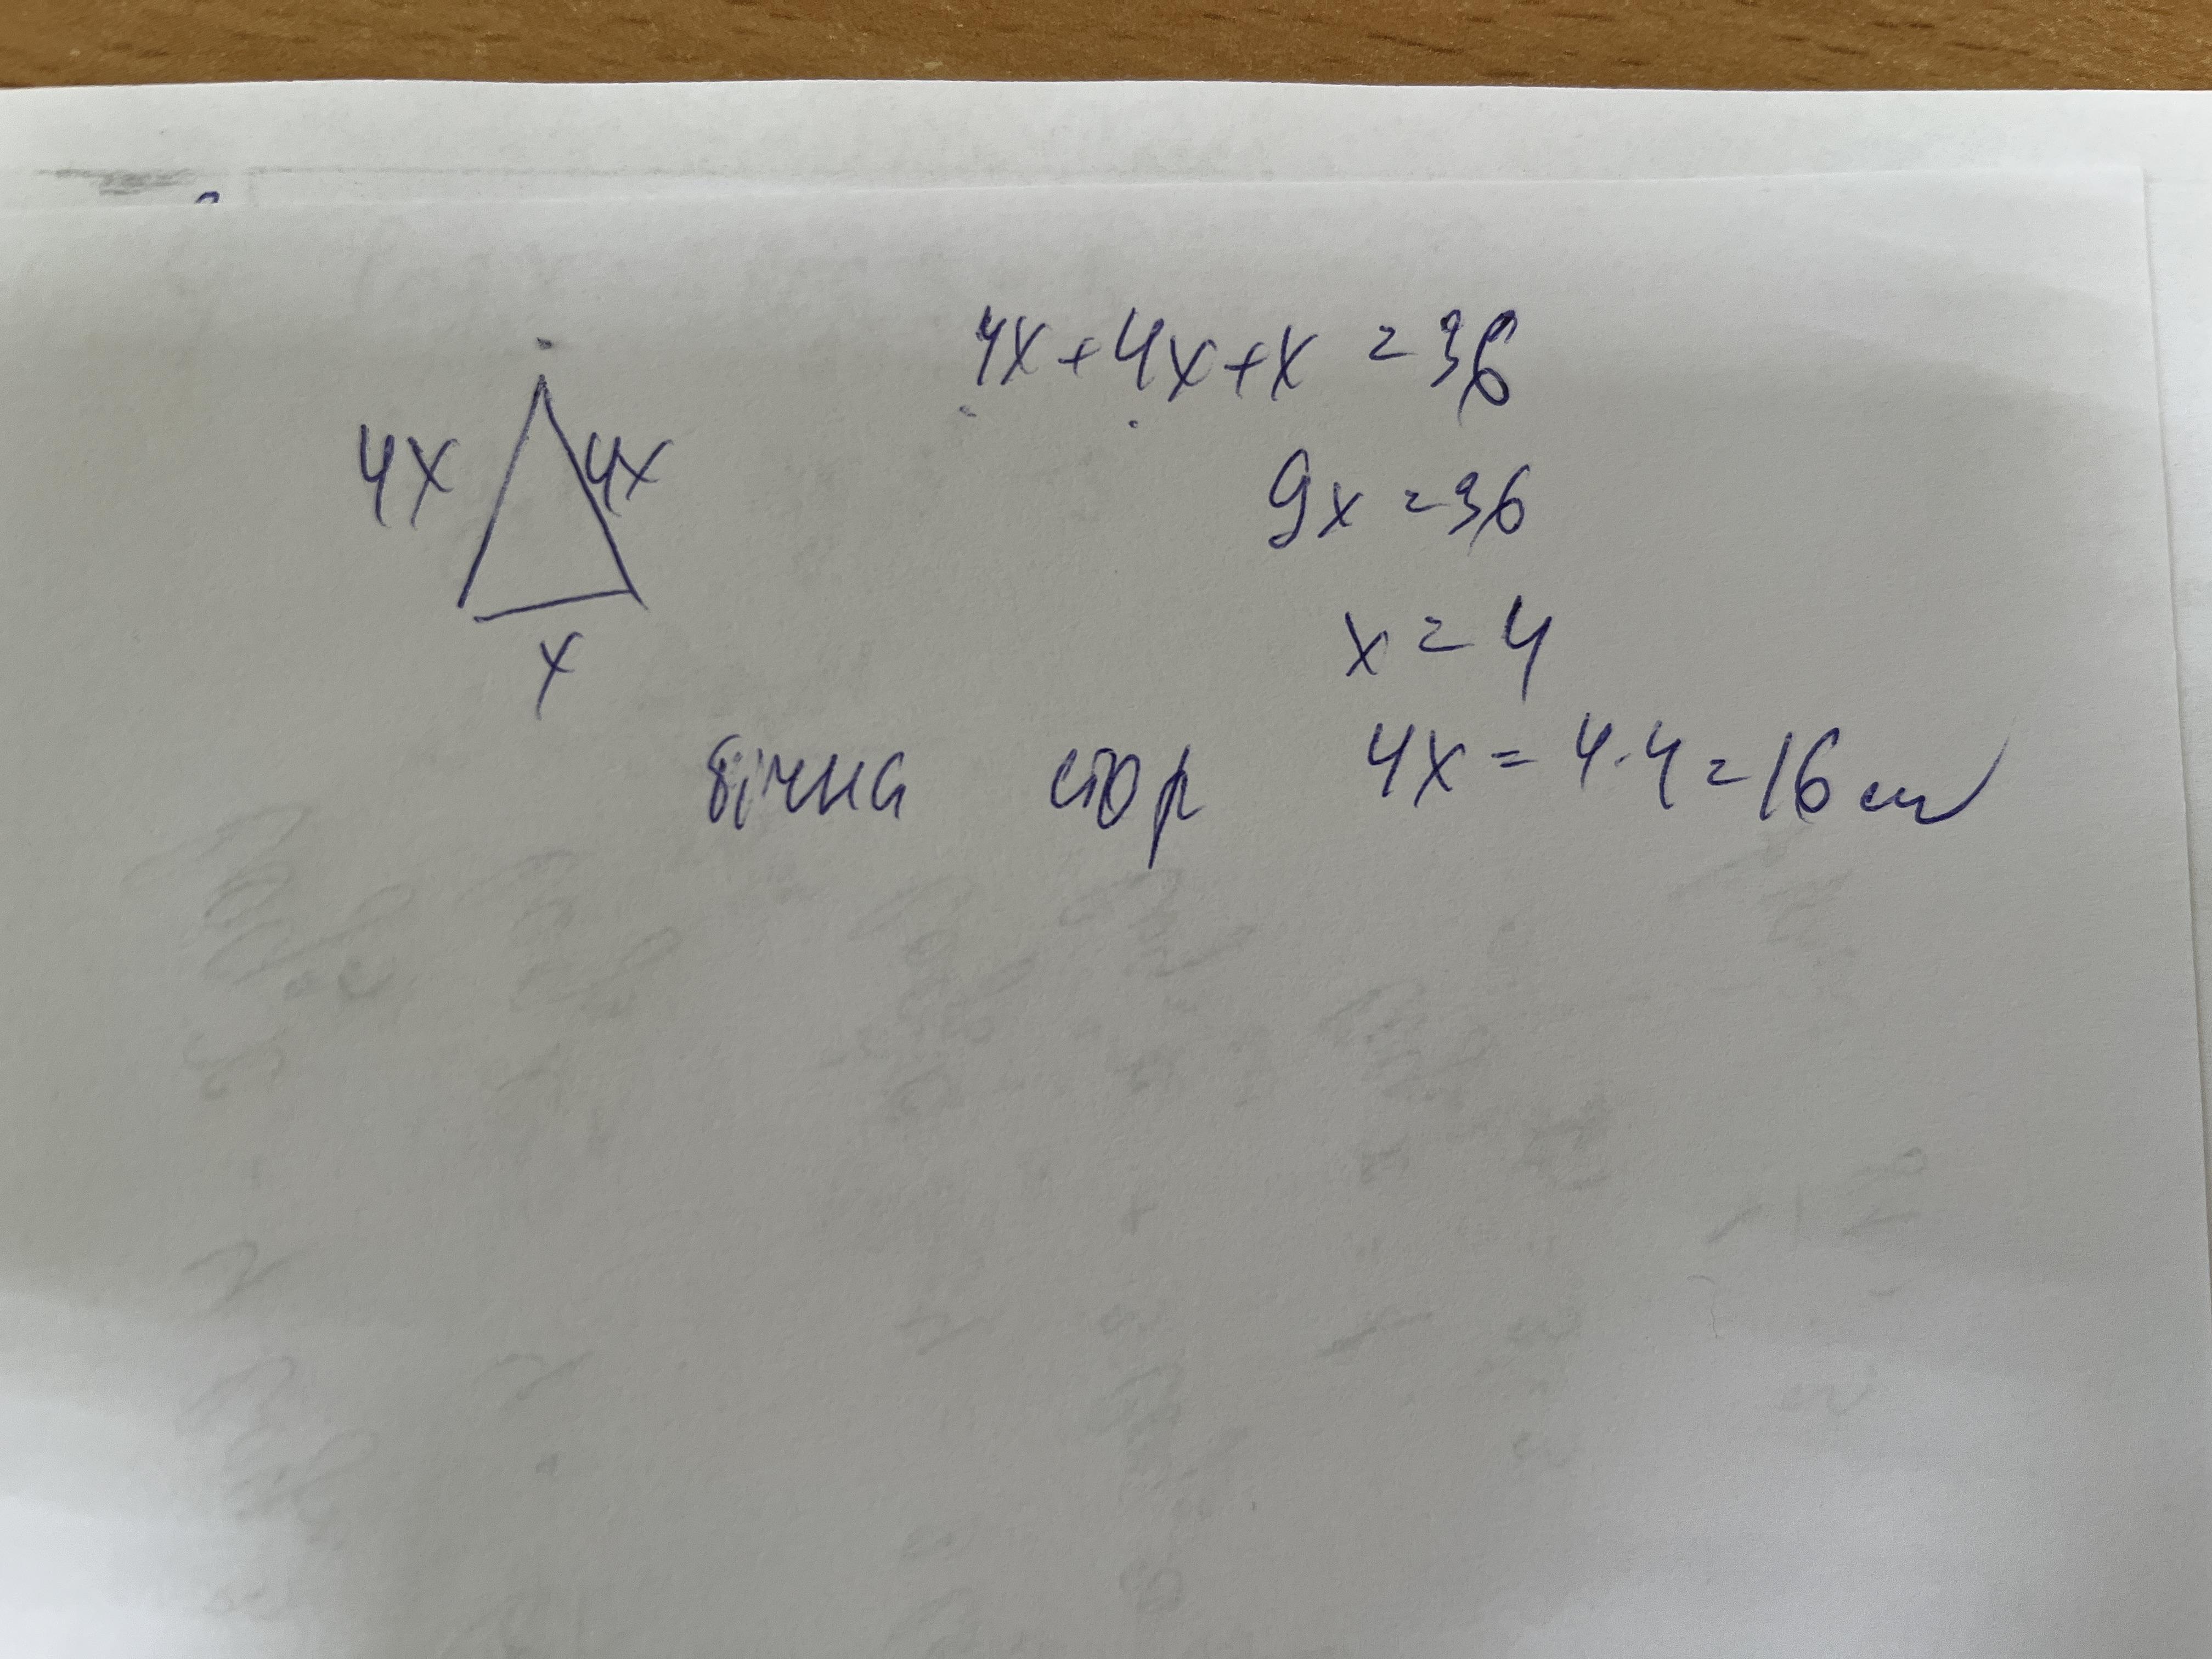 4x + 4x + x = 36
4x 4x
9x = 36
x = 4
x
бічна стор 4x = 4·4 = 16 см